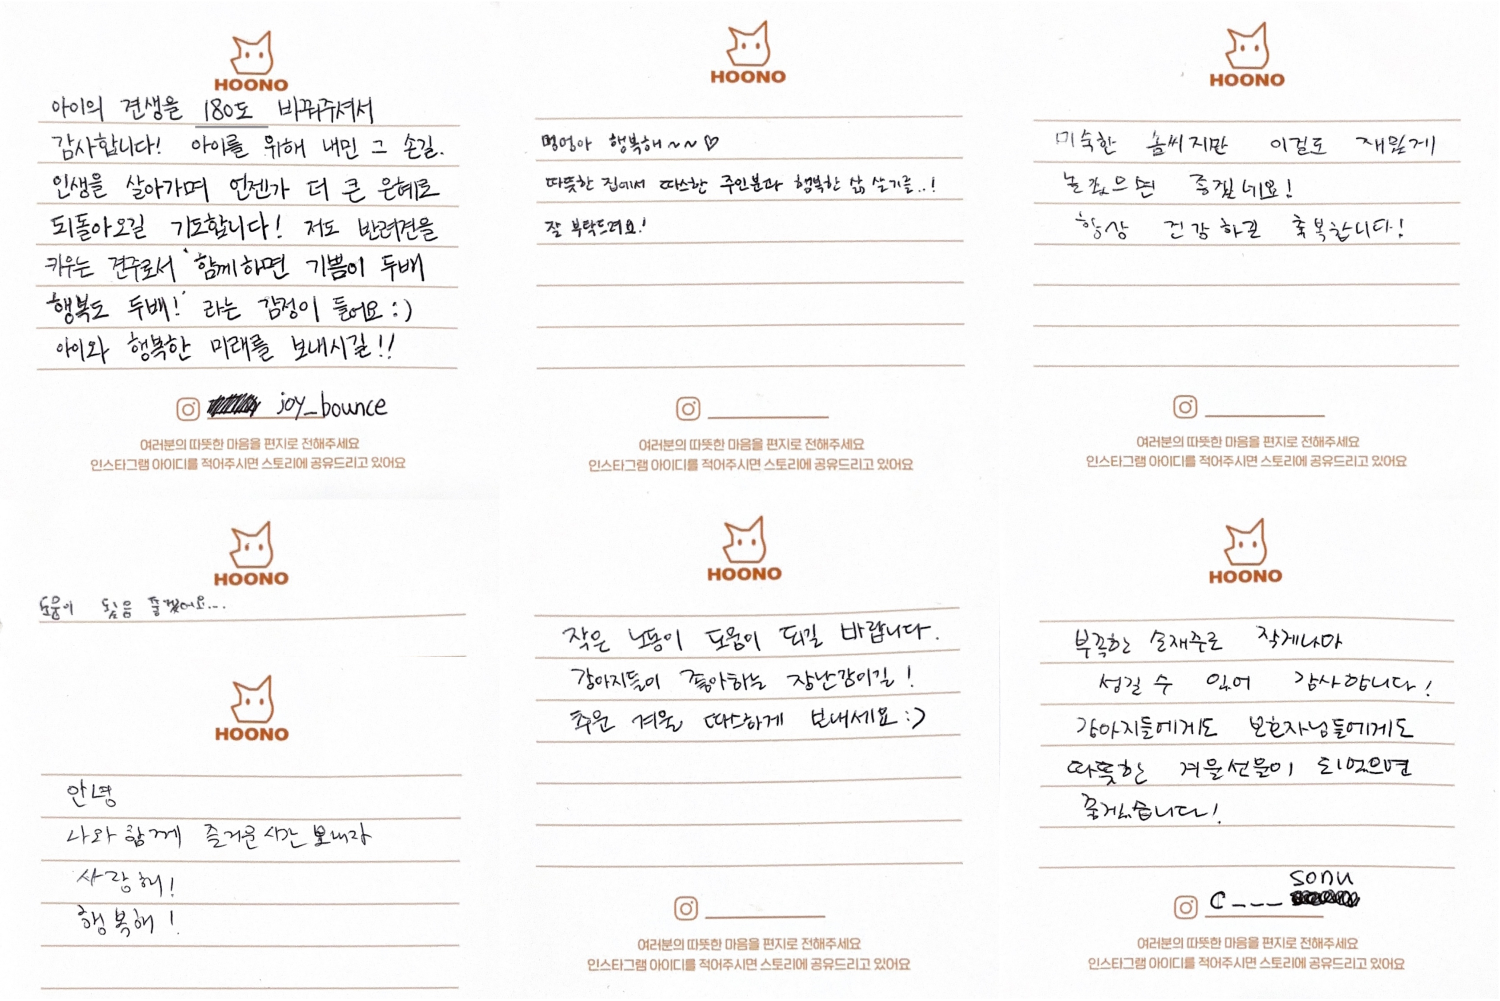 HOONO
아이의 견생을 180도 바꿔주셔서
감사합니다! 아이를 위해 내민 그 손길.
인생을 살아가며 언젠가 더 큰 은혜로
되돌아오길 기도합니다! 저도 반려견을
키우는 견주로서 '함께하면 기쁨이 두배
행복도 두배!' 라는 감정이 들어요:)
아이와 행복한 미래를 보내시길!!
joy_bounce
여러분의 따뜻한 마음을 편지로 전해주세요
인스타그램 아이디를 적어주시면 스토리에 공유드리고 있어요
HOONO
멍멍아 행복해~~♡
따뜻한 집에서 따스한 주인분과 행복한 삶 살기를..!
잘 부탁드려요!
여러분의 따뜻한 마음을 편지로 전해주세요
인스타그램 아이디를 적어주시면 스토리에 공유드리고 있어요
HOONO
미숙한 솜씨지만 이걸로 재밌게
놀았으면 좋겠네요!
항상 건강하고 축복합니다!
여러분의 따뜻한 마음을 편지로 전해주세요
인스타그램 아이디를 적어주시면 스토리에 공유드리고 있어요
HOONO
도움이 됬음 좋겠어요...
HOONO
안녕
나와 함께 즐거운 시간 보내자
사랑해!
행복해!
HOONO
작은 노동이 도움이 되길 바랍니다.
강아지들이 좋아하는 장난감이길!
추운 겨울 따스하게 보내세요:)
여러분의 따뜻한 마음을 편지로 전해주세요
인스타그램 아이디를 적어주시면 스토리에 공유드리고 있어요
HOONO
부족한 손재주로 작게나마
섬길 수 있어 감사합니다!
강아지들에게도 보호자님들에게도
따뜻한 겨울선물이 되었으면
좋겠습니다!
c___sonu
여러분의 따뜻한 마음을 편지로 전해주세요
인스타그램 아이디를 적어주시면 스토리에 공유드리고 있어요